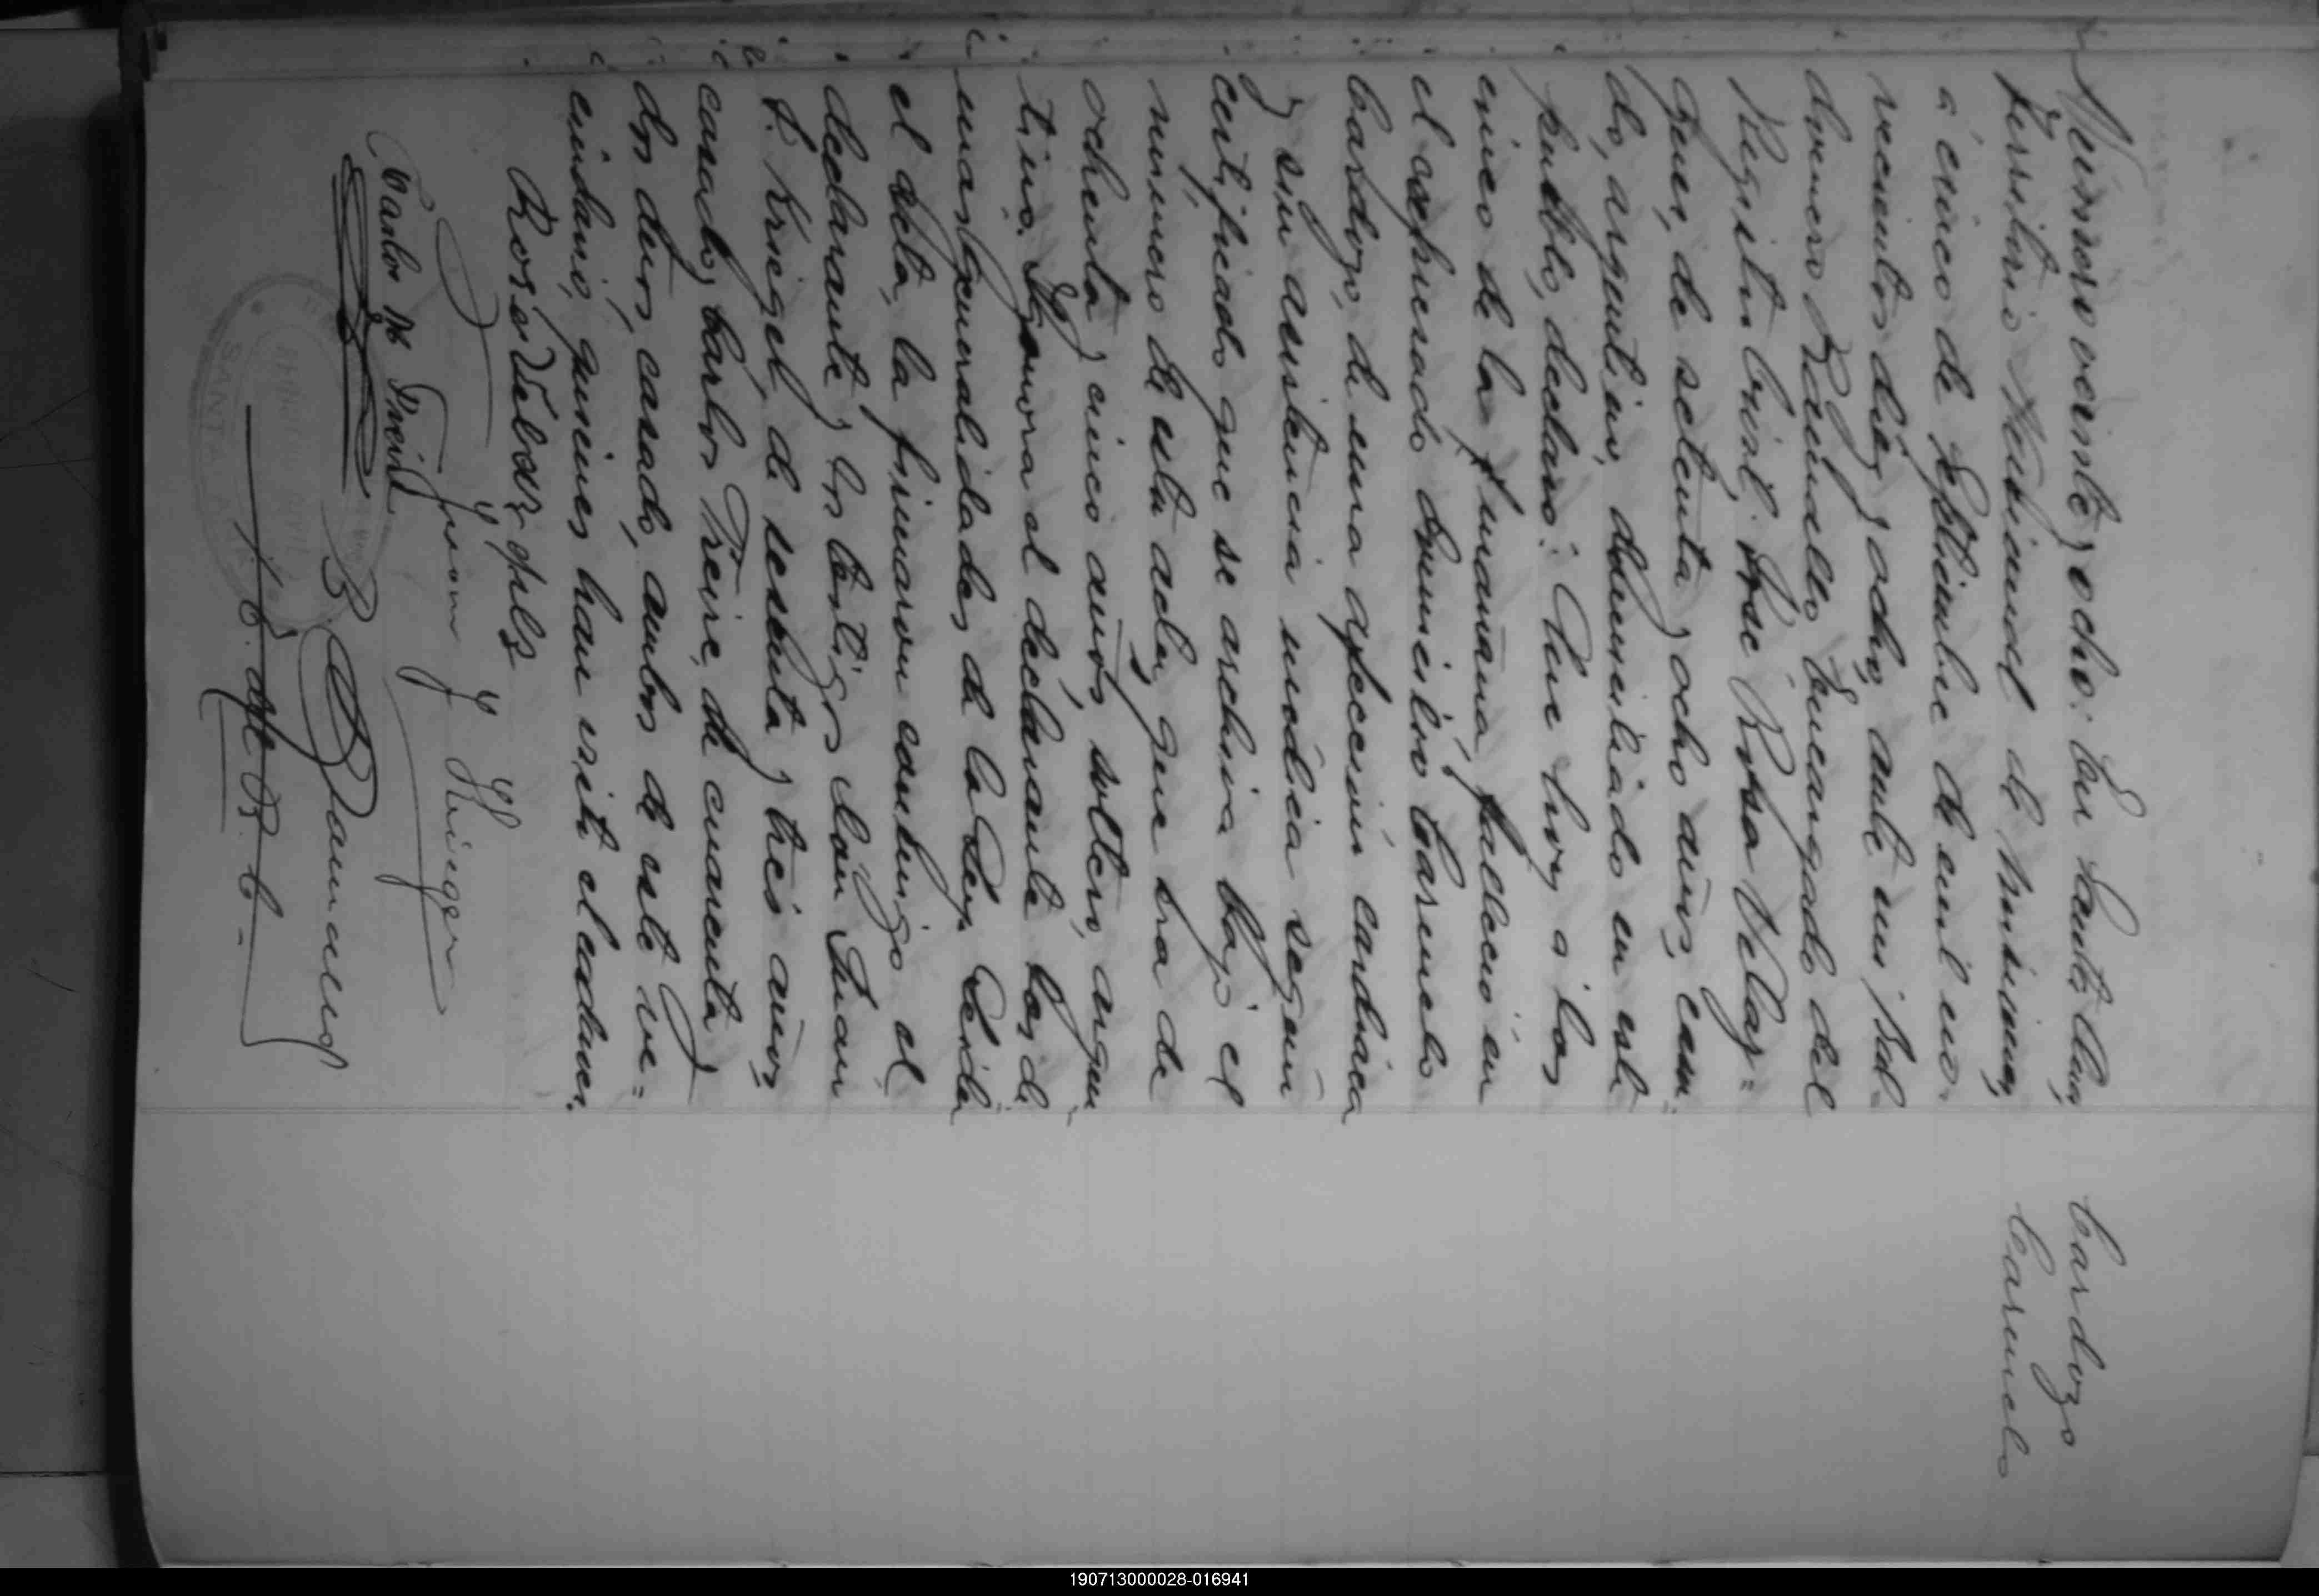 Cardozo
Carmelo
Número veinte y ocho: En Santa Ana,
Territorio Nacional de Misiones,
a cinco de Septiembre de mil no-
vecientos diez y ocho, ante mi
domnero Raimundo Encargado del
Registro Civil, José Rosa Velaz=
quez, de setenta y ocho años, casa
do, argentino, domiciliado en este
pueblo, declaró: Que hoy a las
cinco de la mañana, falleció en
el expresado domicilio Carmelo
Cardozo, de una afección cardiaca
y sin asistencia médica según
certificado que se archiva bajo el
número de esta acta, que era de
ochenta y cinco años, soltero, argen
tino. Ignora el declarante las de
mas generalidades de la Ley. Leida
el acta, la firmaron conmigo el
declarante y los testigos Don Juan
F. Kriegel, de sesenta y tres años
casado, y Carlos Freire, de cuarenta y
dos años, casado, ambos de este ve=
cindario, quienes han visto el cadaver.
Rosa Velazquez
Juan F Krieger
Carlos M Freire
SANTA ANA